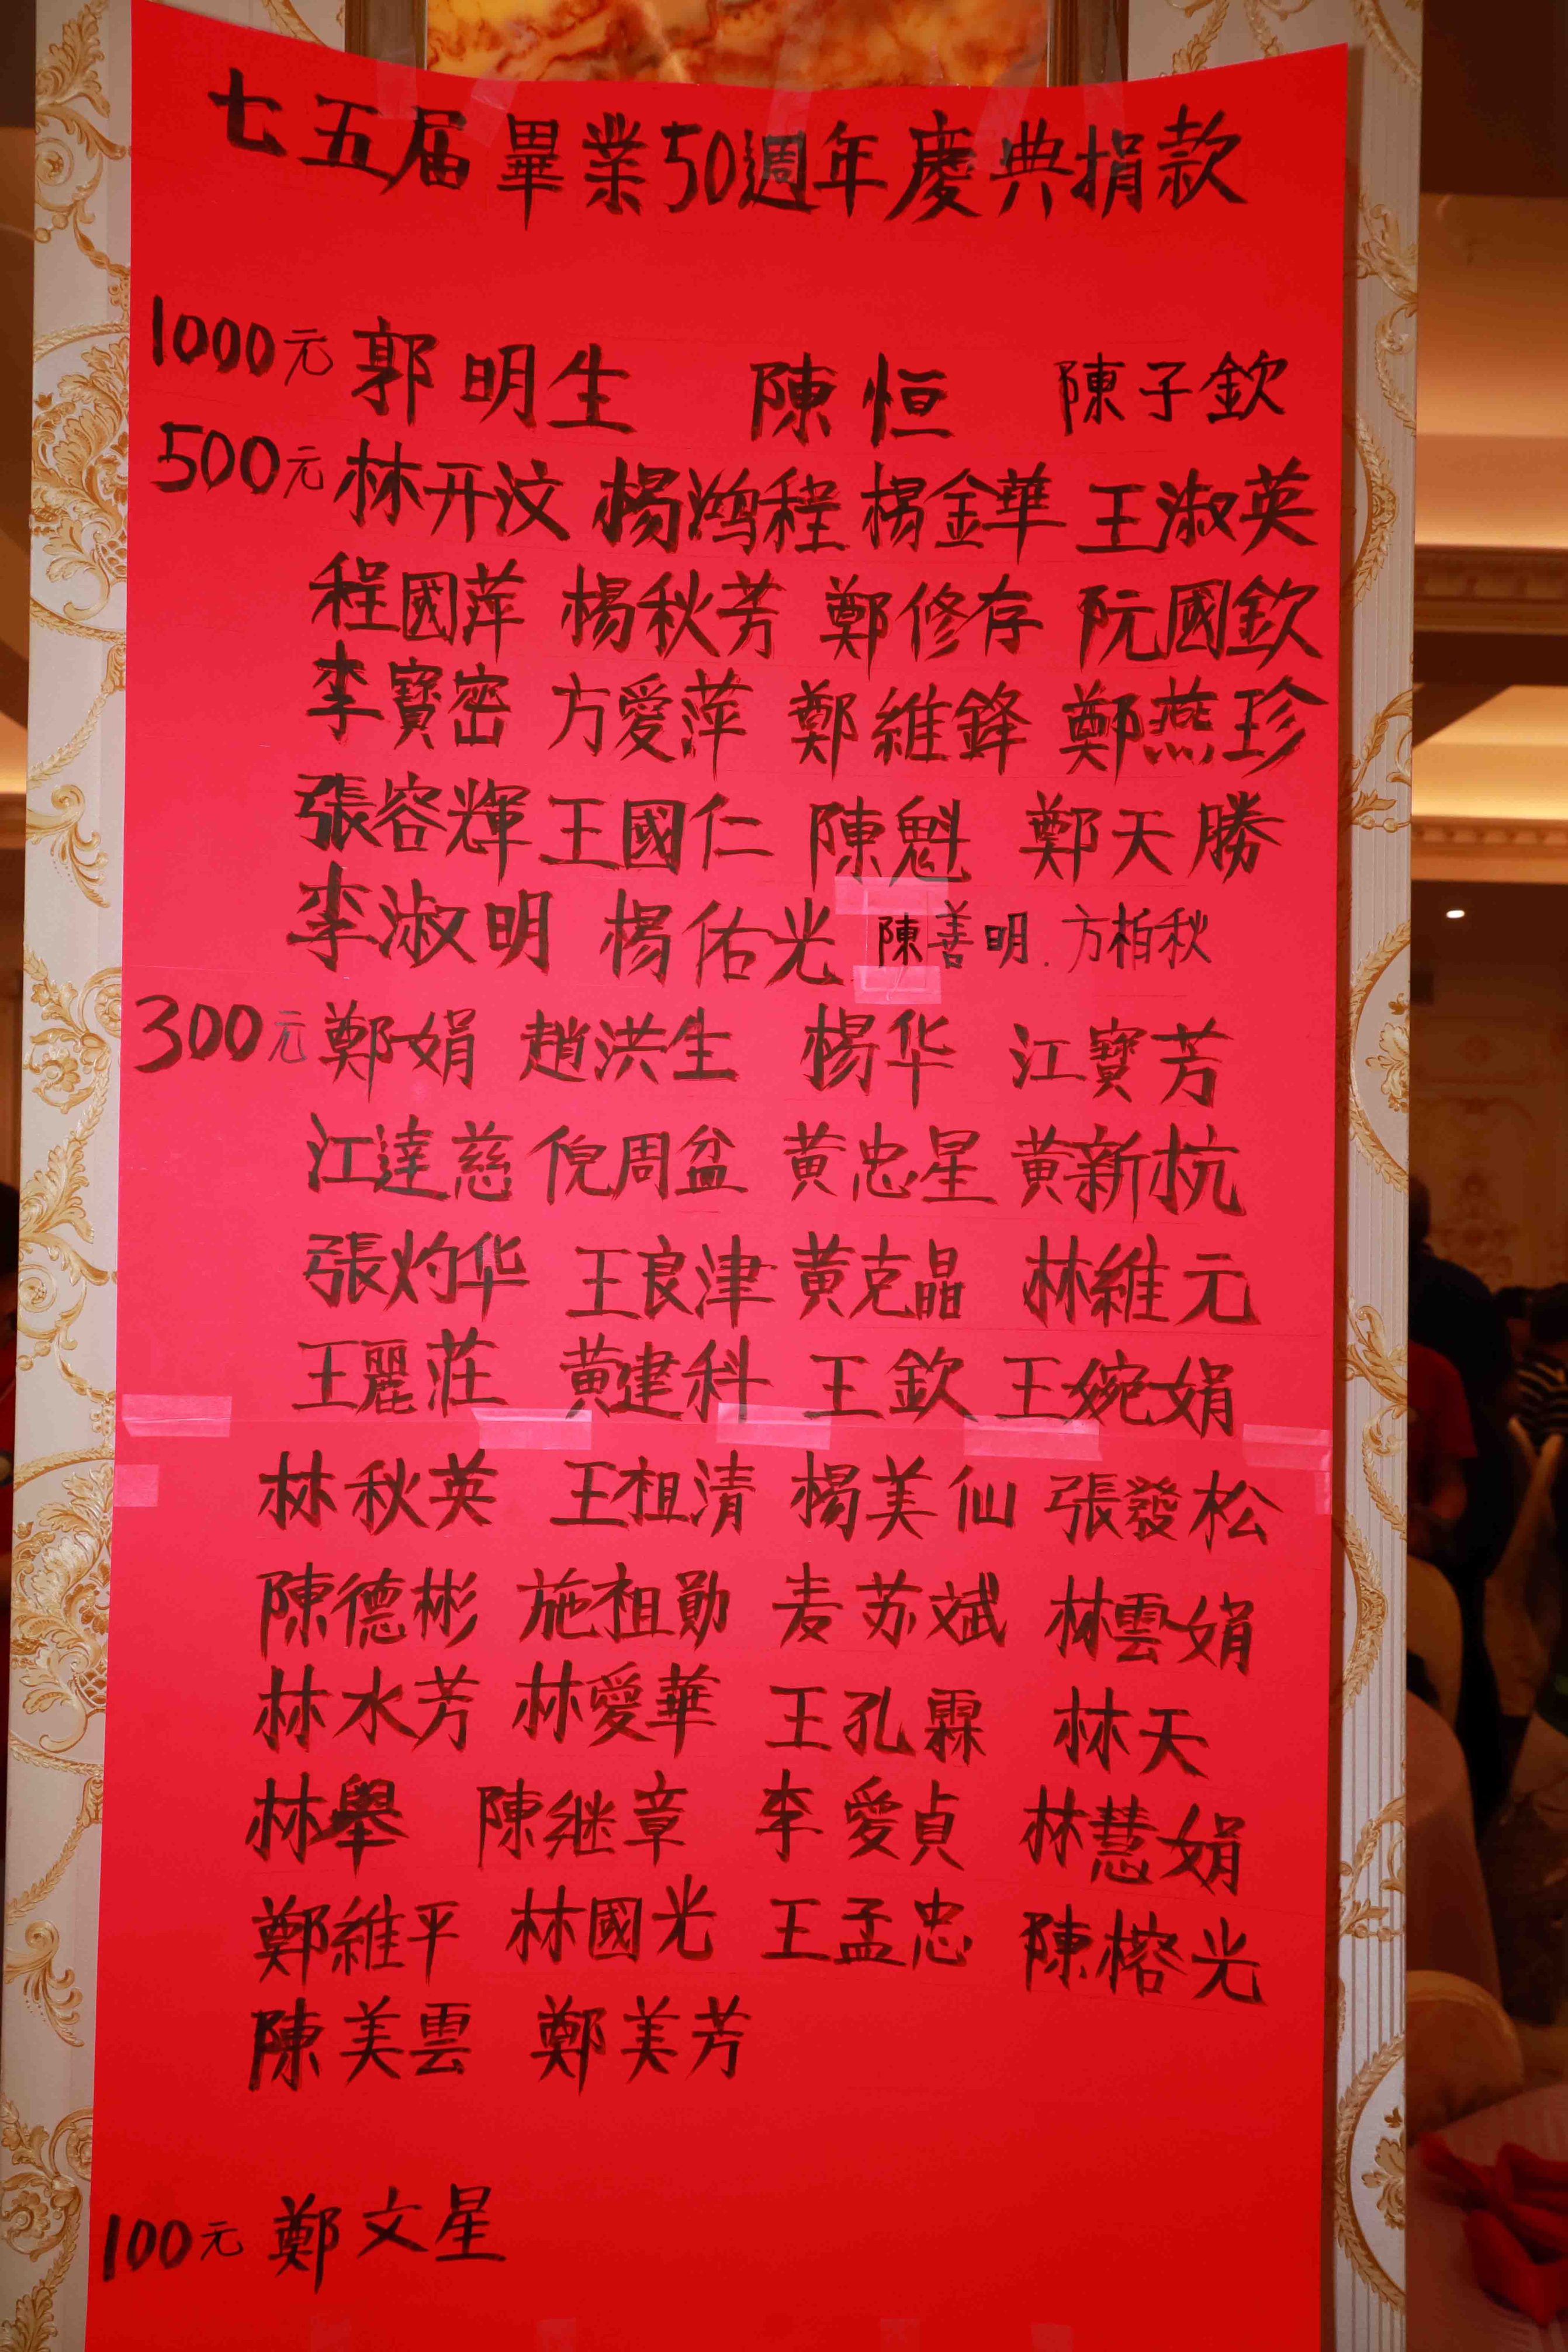 七五届畢業50週年慶典捐款
1000元 郭明生 陳恒 陳子欽
500元 林开汶 楊鸿程 楊金華 王淑英
程國萍 楊秋芳 鄭修存 阮國欽
李寶密 方愛萍 鄭維鋒 鄭燕珍
張容輝 王國仁 陳魁 鄭天勝
李淑明 楊佑光 陳善明.方柏秋
300元 鄭娟 趙洪生 楊华 江寶芳
江達慈 倪周盆 黄忠星 黄新杭
張灼华 王良津 黄克晶 林維元
王麗莊 黄建科 王欽 王婉娟
林秋英 王祖清 楊美仙 張發松
陳德彬 施祖勛 麦苏斌 林雲娟
林水芳 林愛華 王孔霖 林天
林舉 陳继章 李愛貞 林慧娟
鄭維平 林國光 王孟忠 陳榕光
陳美雲 鄭美芳
100元 鄭文星